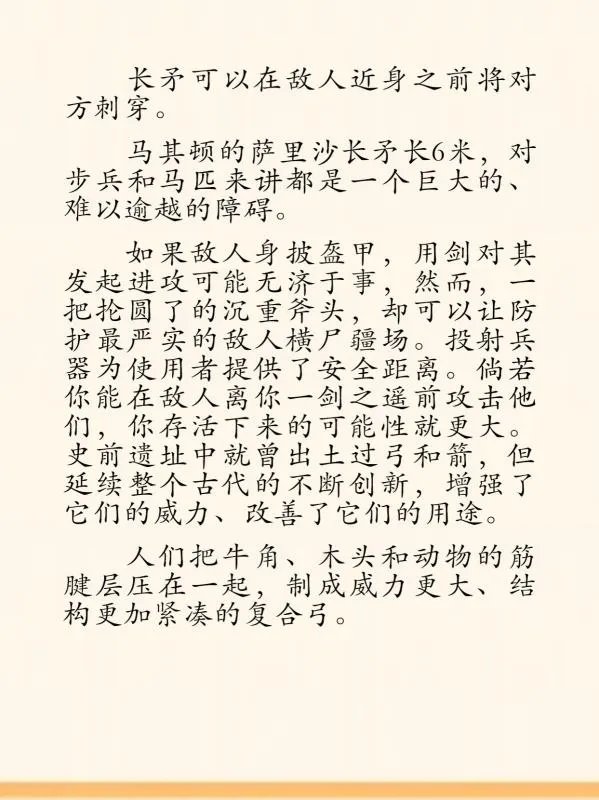 长矛可以在敌人近身之前将对
方刺穿。
马其顿的萨里沙长矛长6米，对
步兵和马匹来讲都是一个巨大的、
难以逾越的障碍。
如果敌人身披盔甲，用剑对其
发起进攻可能无济于事，然而，一
把抡圆了的沉重斧头，却可以让防
护最严实的敌人横尸疆场。投射兵
器为使用者提供了安全距离。倘若
你能在敌人离你一剑之遥前攻击他
们，你存活下来的可能性就更大。
史前遗址中就曾出土过弓和箭，但
延续整个古代的不断创新，增强了
它们的威力、改善了它们的用途。
人们把牛角、木头和动物的筋
腱层压在一起，制成威力更大、结
构更加紧凑的复合弓。